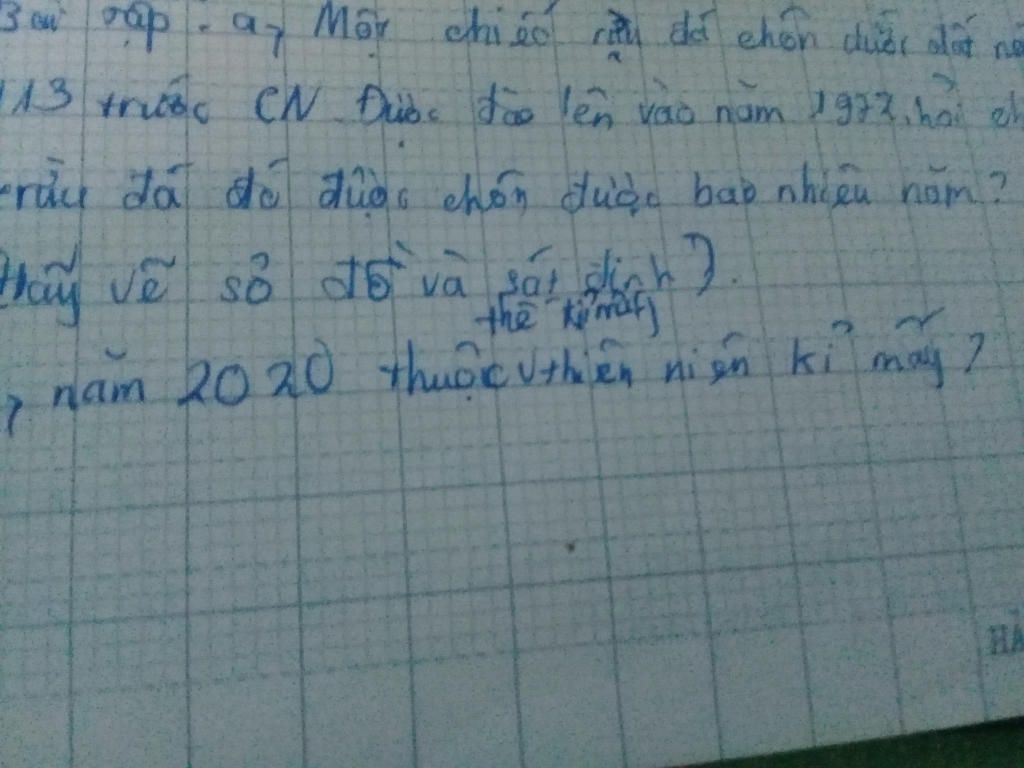 Bài tập - a, Một chiếc rìu đá chôn dưới đất
113 trước CN. Được đào lên vào năm 1977. hỏi
rìu đá đó được chôn được bao nhiêu năm?
Hãy vẽ sơ đồ và sát định).
thế kỉ mấy
, năm 2020 thuộc thiên niên kỉ mấy?
HÀ